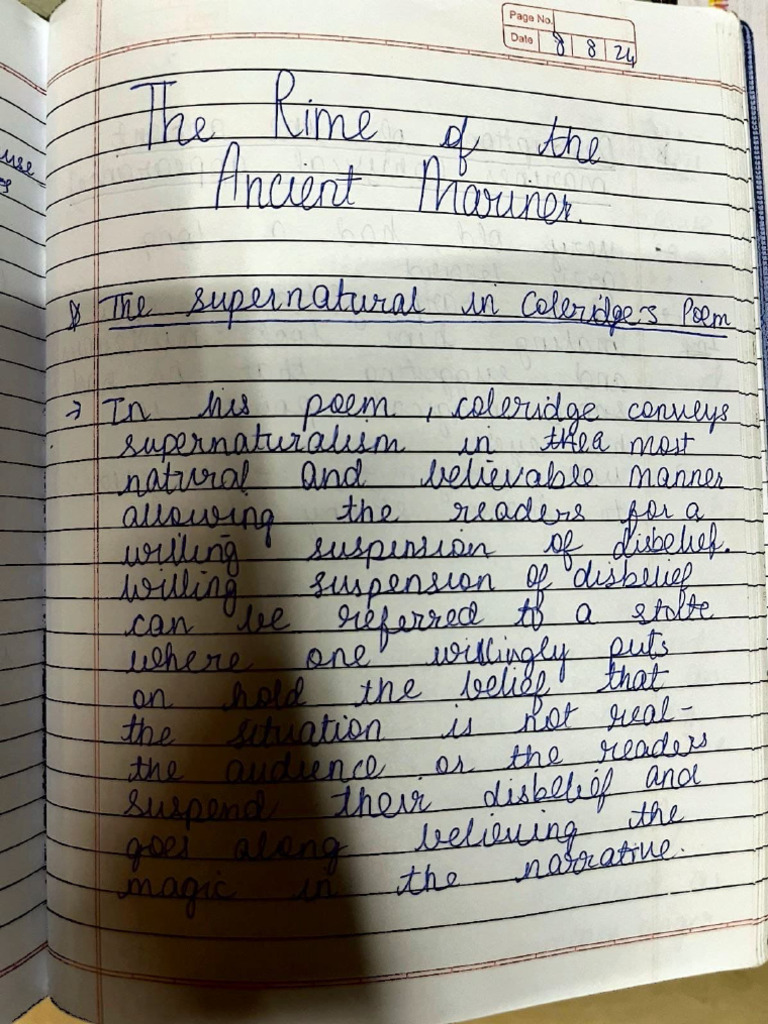 Page No.
Date 8 8 24
use
The Rime of the
Ancient Mariner.
The supernatural in Coleridge's Poem
→ In his poem, coleridge conveys
supernaturalism in the a most
natural and believable manner
allowing the readers for a
willing suspension of disbelief.
willing suspension of disbelief
can be referred to a state
where one willingly puts
on hold the belief that
the situation is not real-
the audience or the readers
suspend their disbelief and
goes along believing the
magic in the narrative.